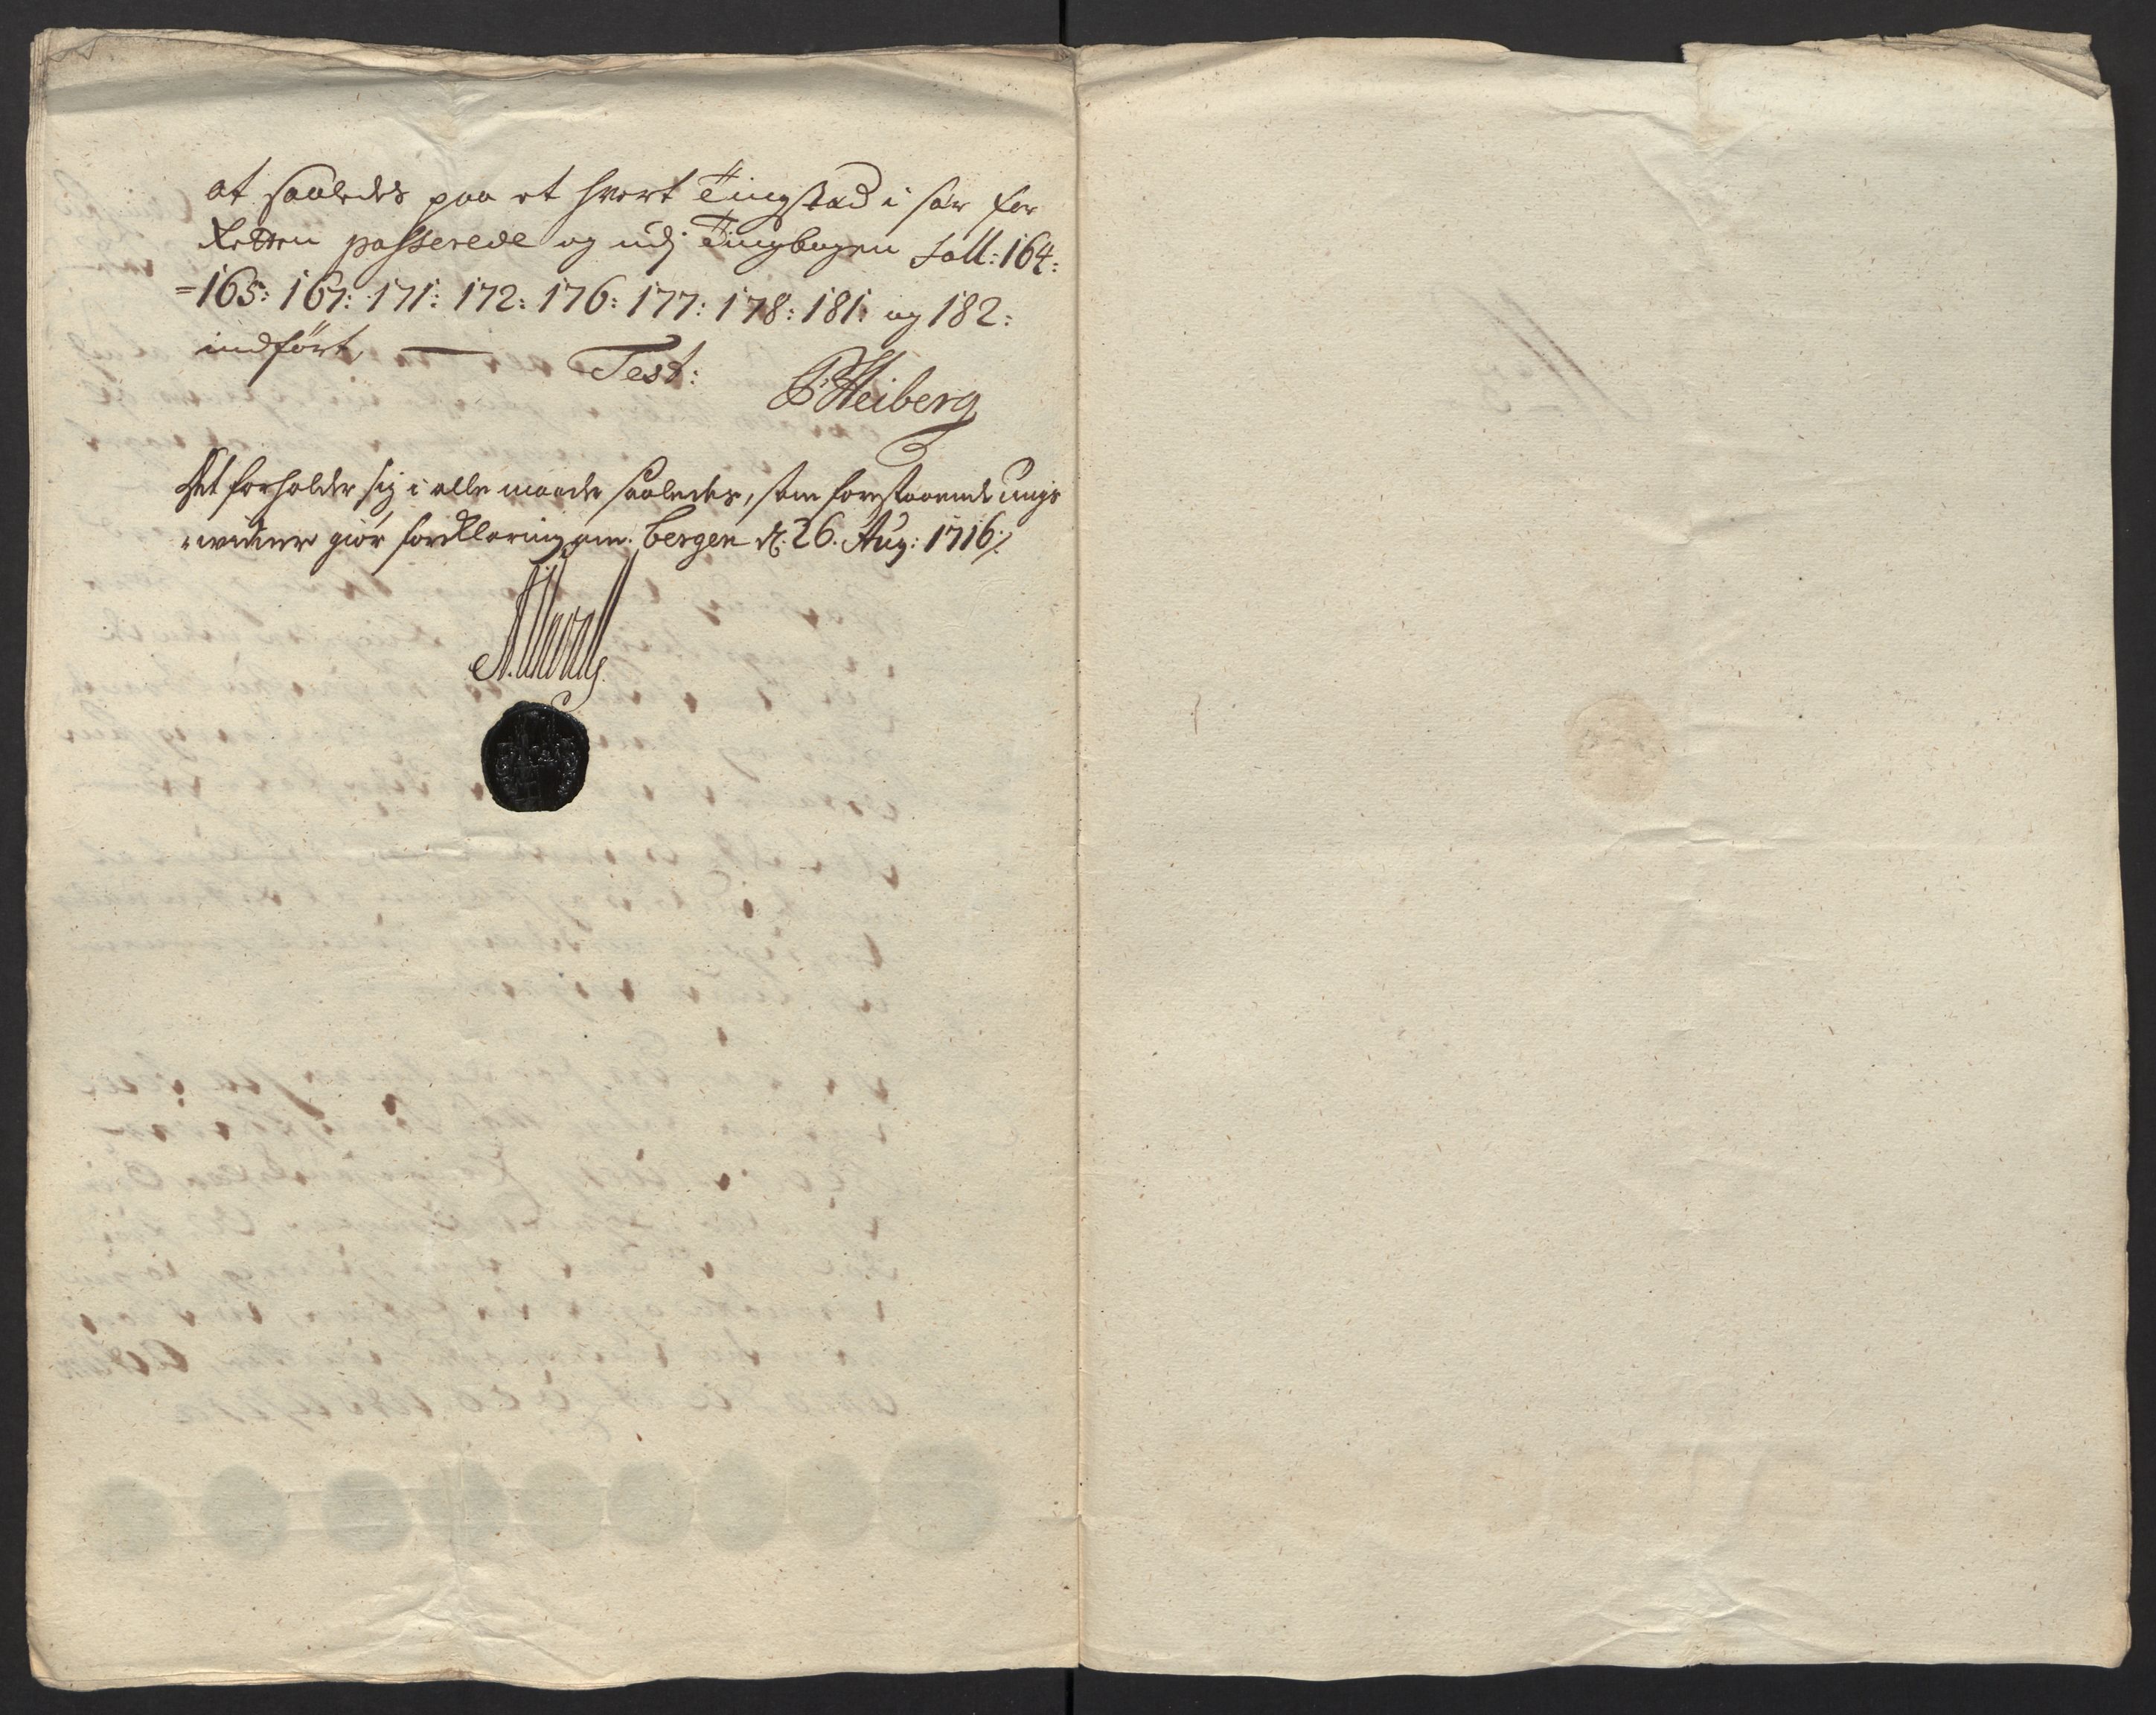 at saaledes paa et hvert Tingstæd i sær for
Retten passerede og udj Tingbogen Foll: 164:
=165: 167: 171: 172: 176: 177: 178: 181: og 182:
indført, — Test:
Heiberg
Det forholder sig i alle maader saaledes, som forestaaende tings
-winner giør forklaring om. Bergen d. 26. Aug: 1716